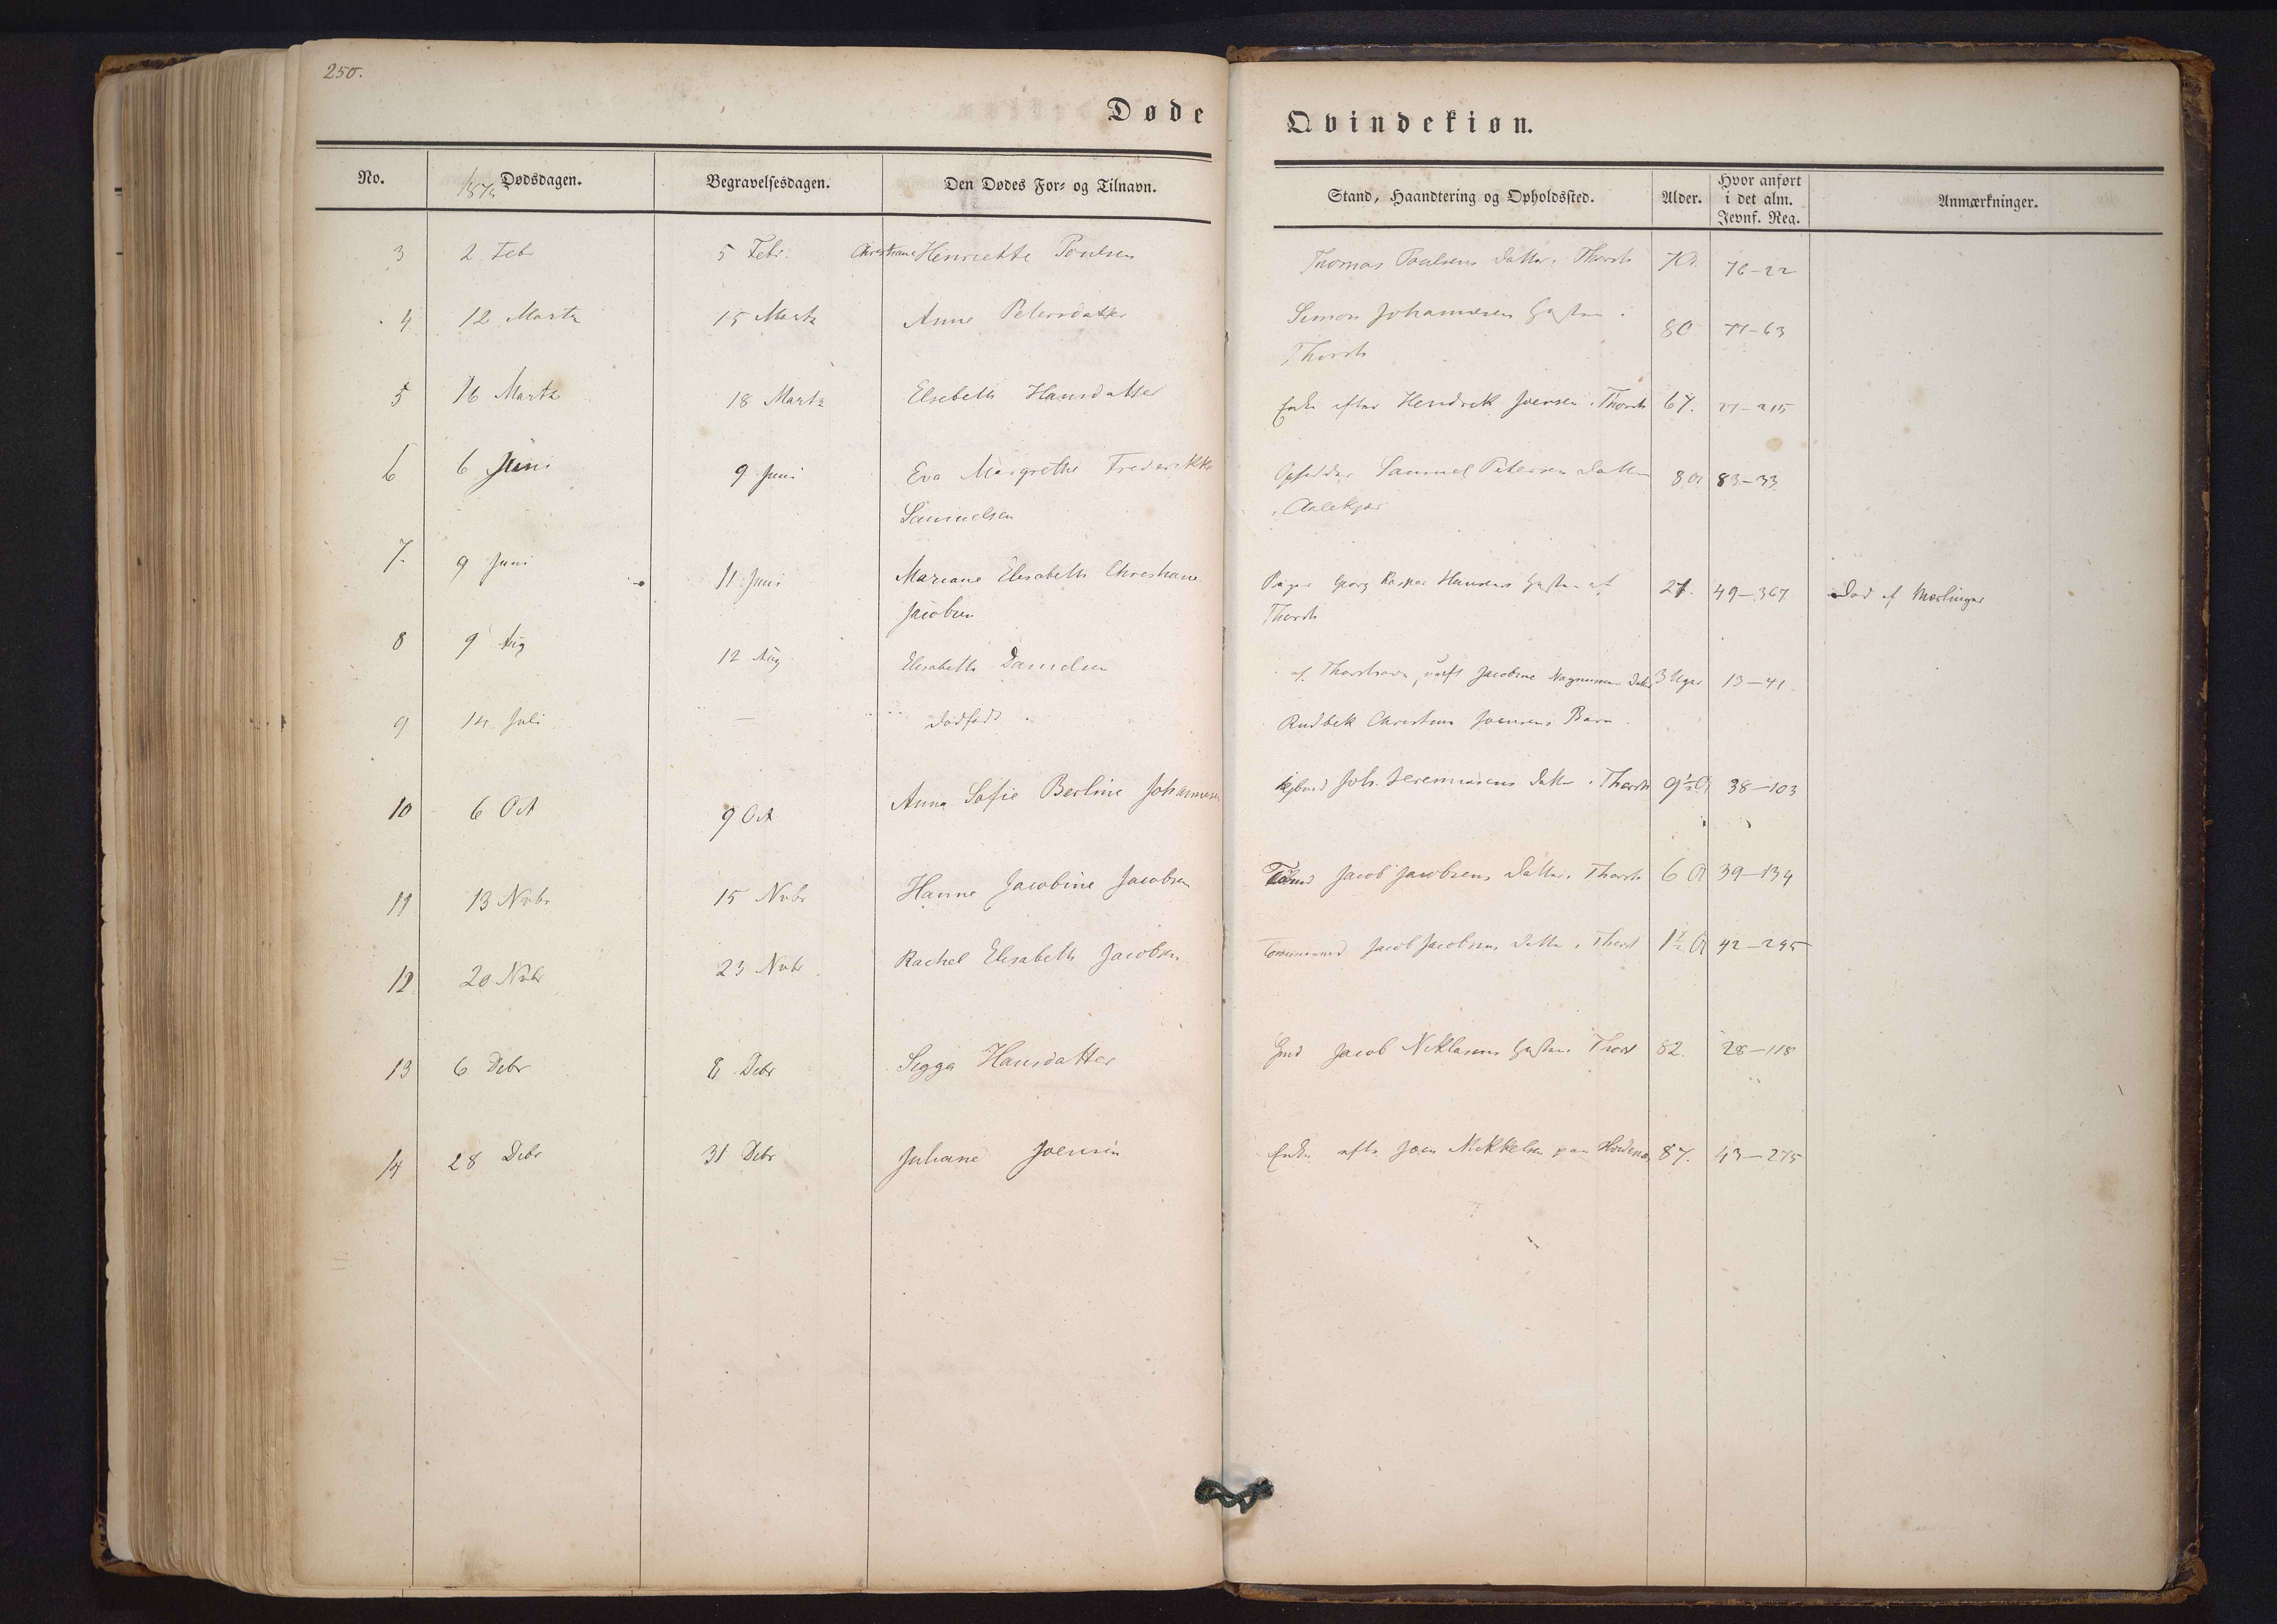 250.
Døde Qvindekiøn.
No. Dødsdagen. 1875 Begravelsesdagen. Den Dødes For- og Tilnavn. Stand, Haandtering og Opholdssted. Alder. Hvor anført i det alm. Jevnf. Reg. Anmærkninger.
3 2 Febr 5 Febr. Christiane Henriette Poulsen Thomas Poulsens Datter i Thorsh 76-22
4 12 Martz 15 Martz Anne Petersdatter Simon Johannesens Hustru i 80 77-63
Thorsh
5 16 Martz 18 Martz Elsebeth Hansdatter Enke efter Hendrik Joensen i Thorsh 67. 27-215
6 6 Juni 9 Juni Eva Margrethe Frederikke Opsidder Samuel Petersen Datter 8 A 83-33
Samuelsen
7. 9 Juni 11 Juni Mariane Elisabeth Christiane Georg Kaspar Hansens Hustru af 27. 49-367 Død af Mæslinger
Jacobsen Thorsh
8 9 Aug 12 Aug Elisabeth Danielsen af Thorshavn, Jacobine Magnussens Datter 3 Uger 13-41
9 14 Juli — dødfødt Rudbek Christian Joensens Barn
10 6 Oct 9 Oct Anna Sofie Berline Johannesen Joh. Jeremiasens Datter i Thorsh 9½ A 38-103
11 13 Nvbr 15 Nvbr Hanne Jacobine Jacobsen Jacob Jacobsens Datter i Thorsh 6 A 39-134
12 20 Nvbr 23 Nvbr Rachel Elisabeth Jacobsen Tømmermd Jacob Jacobsens Datter i Thorsh 1½ A 42-245
13 6 Debr 8 Debr Sigga Hansdatter Jacob Niklasens Hustru i Thorsh 82. 28-118
14 28 Debr 31 Debr Juliane Joensen Enke efter Joen Mikkelsen paa 87. 43-275